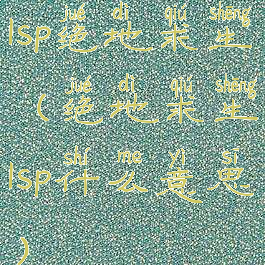 jué dì qiú shēng
lsp绝地求生
jué dì qiú shēng
(绝地求生
shí me yì sī
lsp什么意思
)